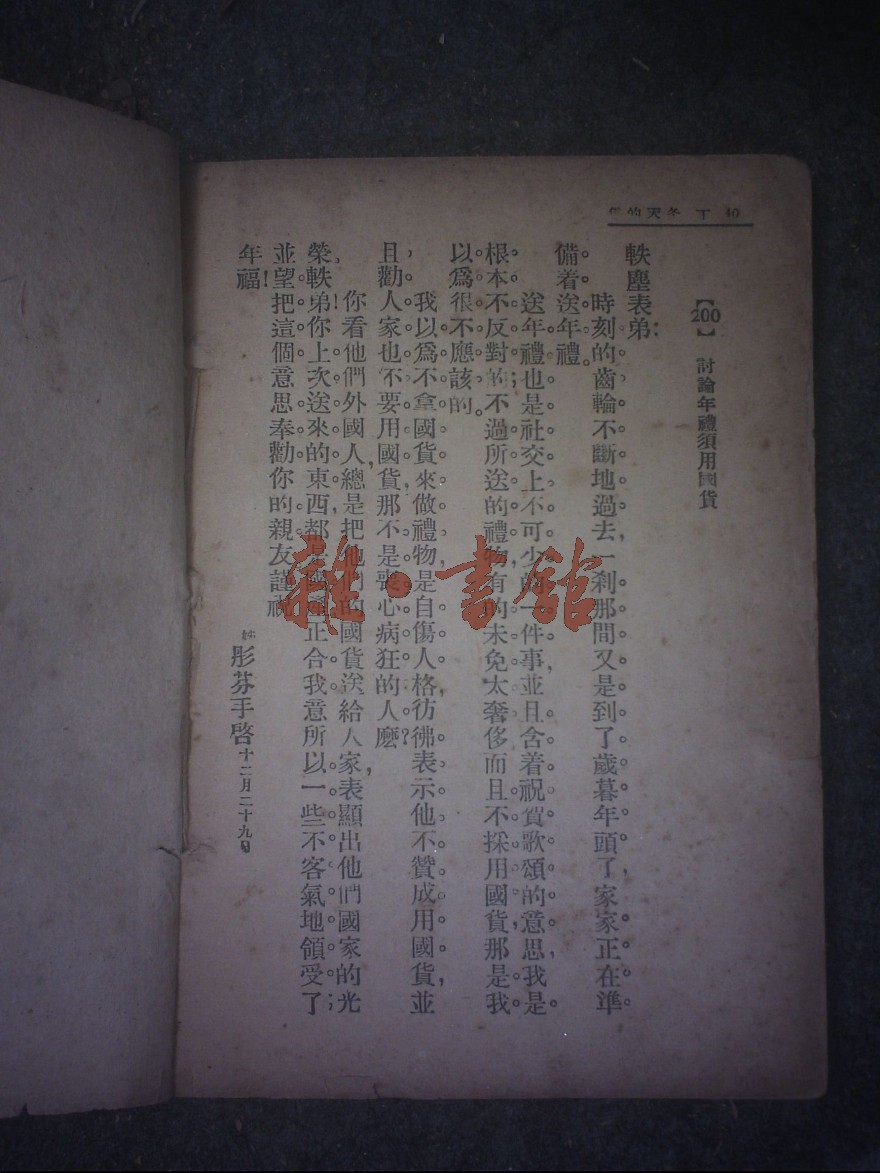 40 丁 冬天的信
【200】 討論年禮須用國貨
軼塵表弟：
時刻的齒輪不斷地過去，一剎那間又是到了歲暮年頭了，家家正在準
備着送年禮。
送年禮也是社交上不可少的一件事，並且含着祝賀歌頌的意思，我是
根本不反對的；不過所送的禮物有的未免太奢侈而且不採用國貨，那是我
以爲很不應該的。
我以爲不拿國貨來做禮物，是自傷人格，彷彿表示他不贊成用國貨，並
且勸人家也不要用國貨，那不是喪心病狂的人麼？
你看他們外國人，總是把他們的國貨送給人家，表顯出他們國家的光
榮，軼弟！你上次送來的東西都是國產正合我意所以一些不客氣地領受了；
並望把這個意思奉勸你的親友謹祝
年福！
彤芬手啓 十二月二十九日
雜·書館